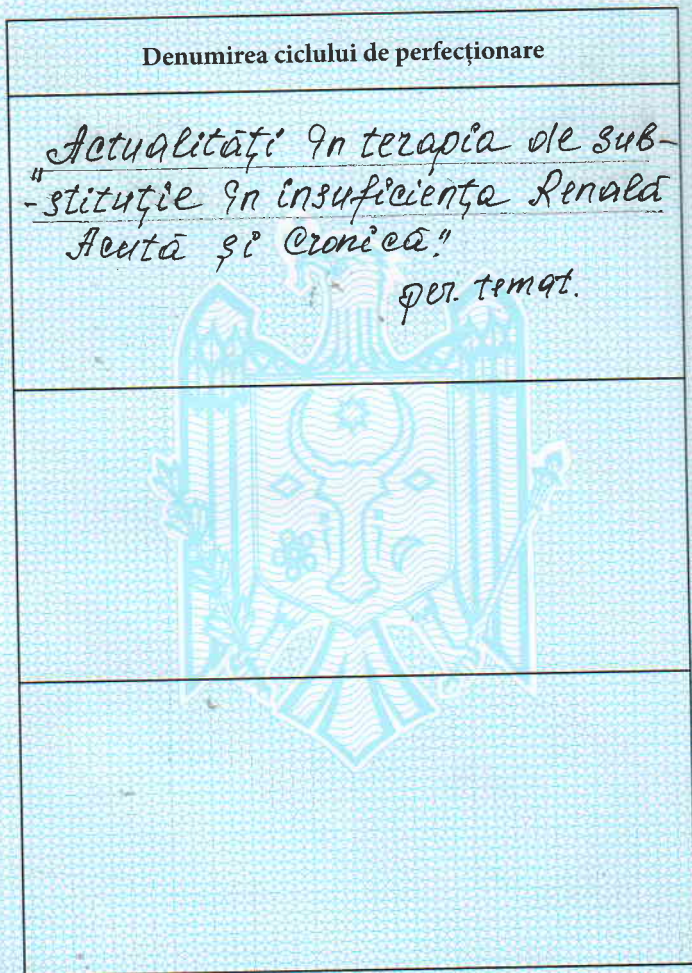 Denumirea ciclului de perfecționare
„Actualități în terapia de sub-
-stituție în insuficiența Renală
Acută și Cronică."
per. temat.